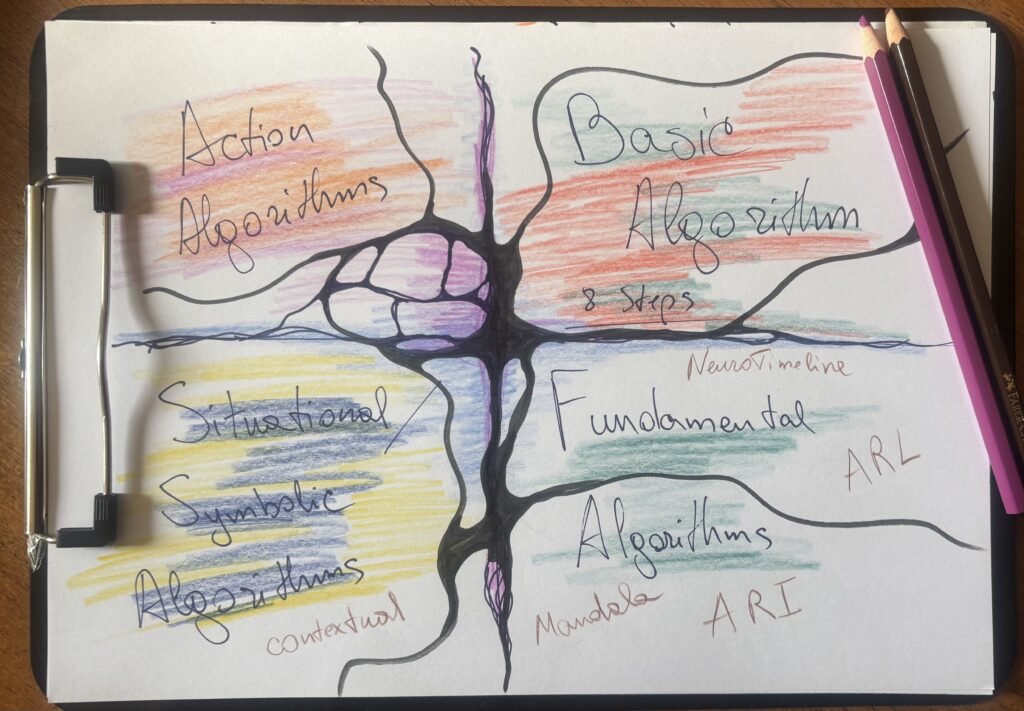 Action
Algorithms
Basic
Algorithm
8 Steps
NeuroTimeline
Situational
Symbolic
Algorithms
contextual
Fundamental
ARL
Algorithms
Mandala
ARI
FABER